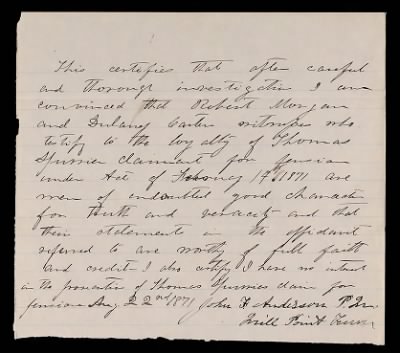 This certifies that after careful
and thorough investigation I am
convinced that Robert Morgan
and Dulany Carter witnesses who
testify to the loyalty of Thomas
Spurrier claimant for pension
under Act of 14th 1871 are
men of good character
for truth and veracity and that
their statements in the affidavit
referred to are worthy of full faith
and credit I also certify I have no interest
in the prosecution of Thomas Spurriers claim for
pension Aug 22nd 1871 John F Anderson P.M.
Mill Point Tenn